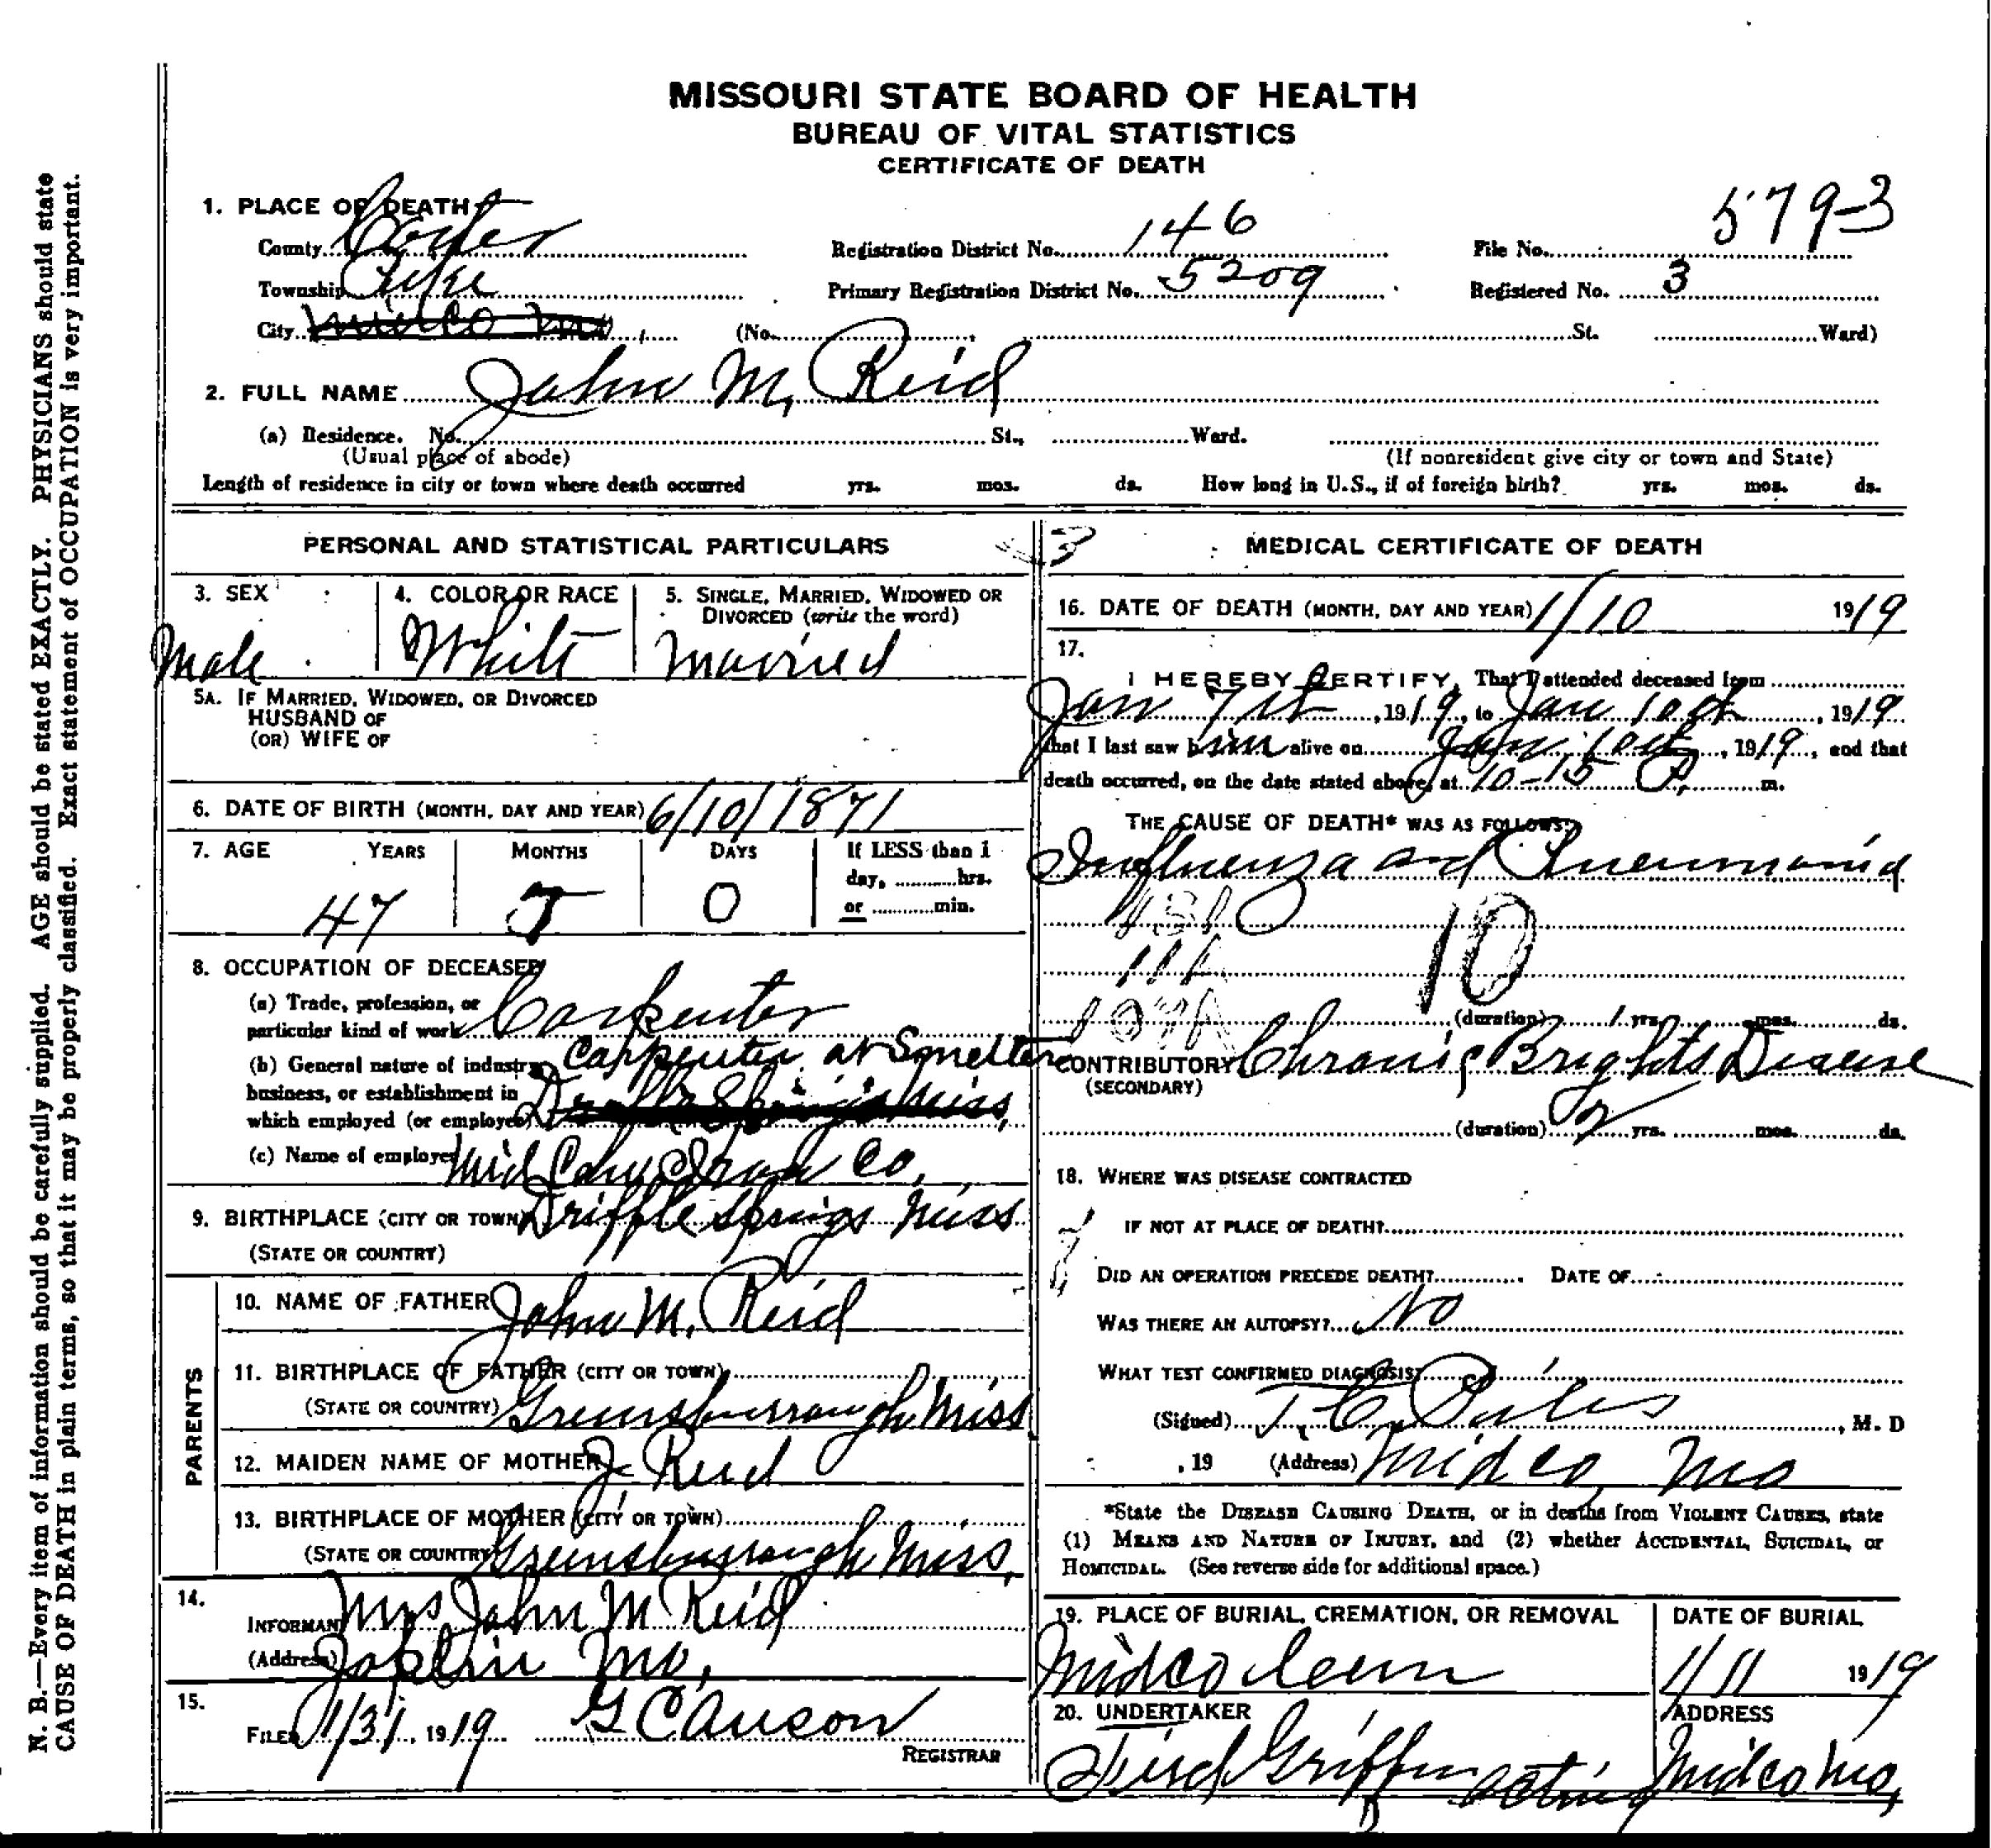 MISSOURI STATE BOARD OF HEALTH
BUREAU OF VITAL STATISTICS
CERTIFICATE OF DEATH
1. PLACE OF DEATH
County Carter Registration District No. 146 File No. 5793
Township Pike Primary Registration District No. 5209 Registered No. 3
City Midco Mo, (No. St. Ward)
2. FULL NAME John M. Reid
(a) Residence. No. St., Ward.
(Usual place of abode) (If nonresident give city or town and State)
Length of residence in city or town where death occurred yrs. mos. ds. How long in U.S., if of foreign birth? yrs. mos. ds.
PERSONAL AND STATISTICAL PARTICULARS
3. SEX 4. COLOR OR RACE 5. SINGLE, MARRIED, WIDOWED OR
DIVORCED (write the word)
Male White Married
5A. IF MARRIED, WIDOWED, OR DIVORCED
HUSBAND OF
(OR) WIFE OF
6. DATE OF BIRTH (MONTH, DAY AND YEAR) 6/10/1871
7. AGE YEARS MONTHS DAYS If LESS than 1
day, hrs.
or min.
47 0
8. OCCUPATION OF DECEASED
(a) Trade, profession, or
particular kind of work Carpenter
(b) General nature of industry, Carpenter at Smelter
business, or establishment in
which employed (or employer) Springs Miss,
(c) Name of employer Mid Iron Co,
9. BIRTHPLACE (CITY OR TOWN) Driffle Springs Miss
(STATE OR COUNTRY)
PARENTS
10. NAME OF FATHER John M. Reid
11. BIRTHPLACE OF FATHER (CITY OR TOWN)
(STATE OR COUNTRY) Greensburrough Miss
12. MAIDEN NAME OF MOTHER J. Reid
13. BIRTHPLACE OF MOTHER (CITY OR TOWN)
(STATE OR COUNTRY) Greensburrough Miss,
14.
INFORMANT Mrs John M Reid
(Address) Joplin Mo,
15.
FILED 1/31, 1919 G C
REGISTRAR
3
MEDICAL CERTIFICATE OF DEATH
16. DATE OF DEATH (MONTH, DAY AND YEAR) 1/10 1919
17.
I HEREBY CERTIFY, That I attended deceased from
Jan 7th, 1919, to Jan 10th, 1919
that I last saw him alive on Jan 10th, 1919, and that
death occurred, on the date stated above, at 10-15 P. m.
THE CAUSE OF DEATH* WAS AS FOLLOWS:
Influenza and Pneumonia
11A
10
(duration) yrs. mos. ds.
CONTRIBUTORY Chronic Brights Disease
(SECONDARY)
(duration) 2 yrs. mos. ds.
18. WHERE WAS DISEASE CONTRACTED
IF NOT AT PLACE OF DEATH?
DID AN OPERATION PRECEDE DEATH? DATE OF
WAS THERE AN AUTOPSY? No
WHAT TEST CONFIRMED DIAGNOSIS?
(Signed) , M. D
, 19 (Address) Midco Mo
*State the DISEASE CAUSING DEATH, or in deaths from VIOLENT CAUSES, state
(1) MEANS AND NATURE OF INJURY, and (2) whether ACCIDENTAL, SUICIDAL, or
HOMICIDAL. (See reverse side for additional space.)
19. PLACE OF BURIAL, CREMATION, OR REMOVAL DATE OF BURIAL
Midco Cem 1/11 1919
20. UNDERTAKER ADDRESS
Griffin acting Midco Mo,
N. B.—Every item of information should be carefully supplied. AGE should be stated EXACTLY. PHYSICIANS should state
CAUSE OF DEATH in plain terms, so that it may be properly classified. Exact statement of OCCUPATION is very important.